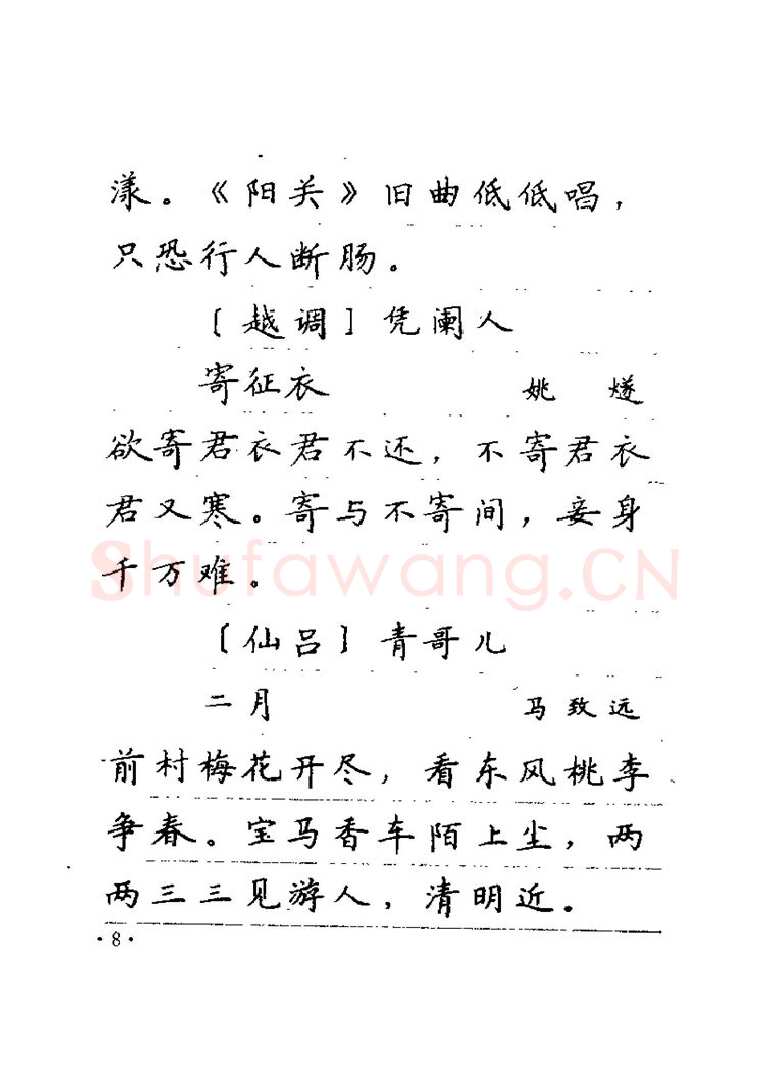 漾。《阳关》旧曲低低唱，
只恐行人断肠。
〔越调〕凭阑人
寄征衣 姚 燧
欲寄君衣君不还，不寄君衣
君又寒。寄与不寄间，妾身
千万难。
Shufawang.CN
〔仙吕〕青哥儿
二月 马致远
前村梅花开尽，看东风桃李
争春。宝马香车陌上尘，两
两三三见游人，清明近。
·8·